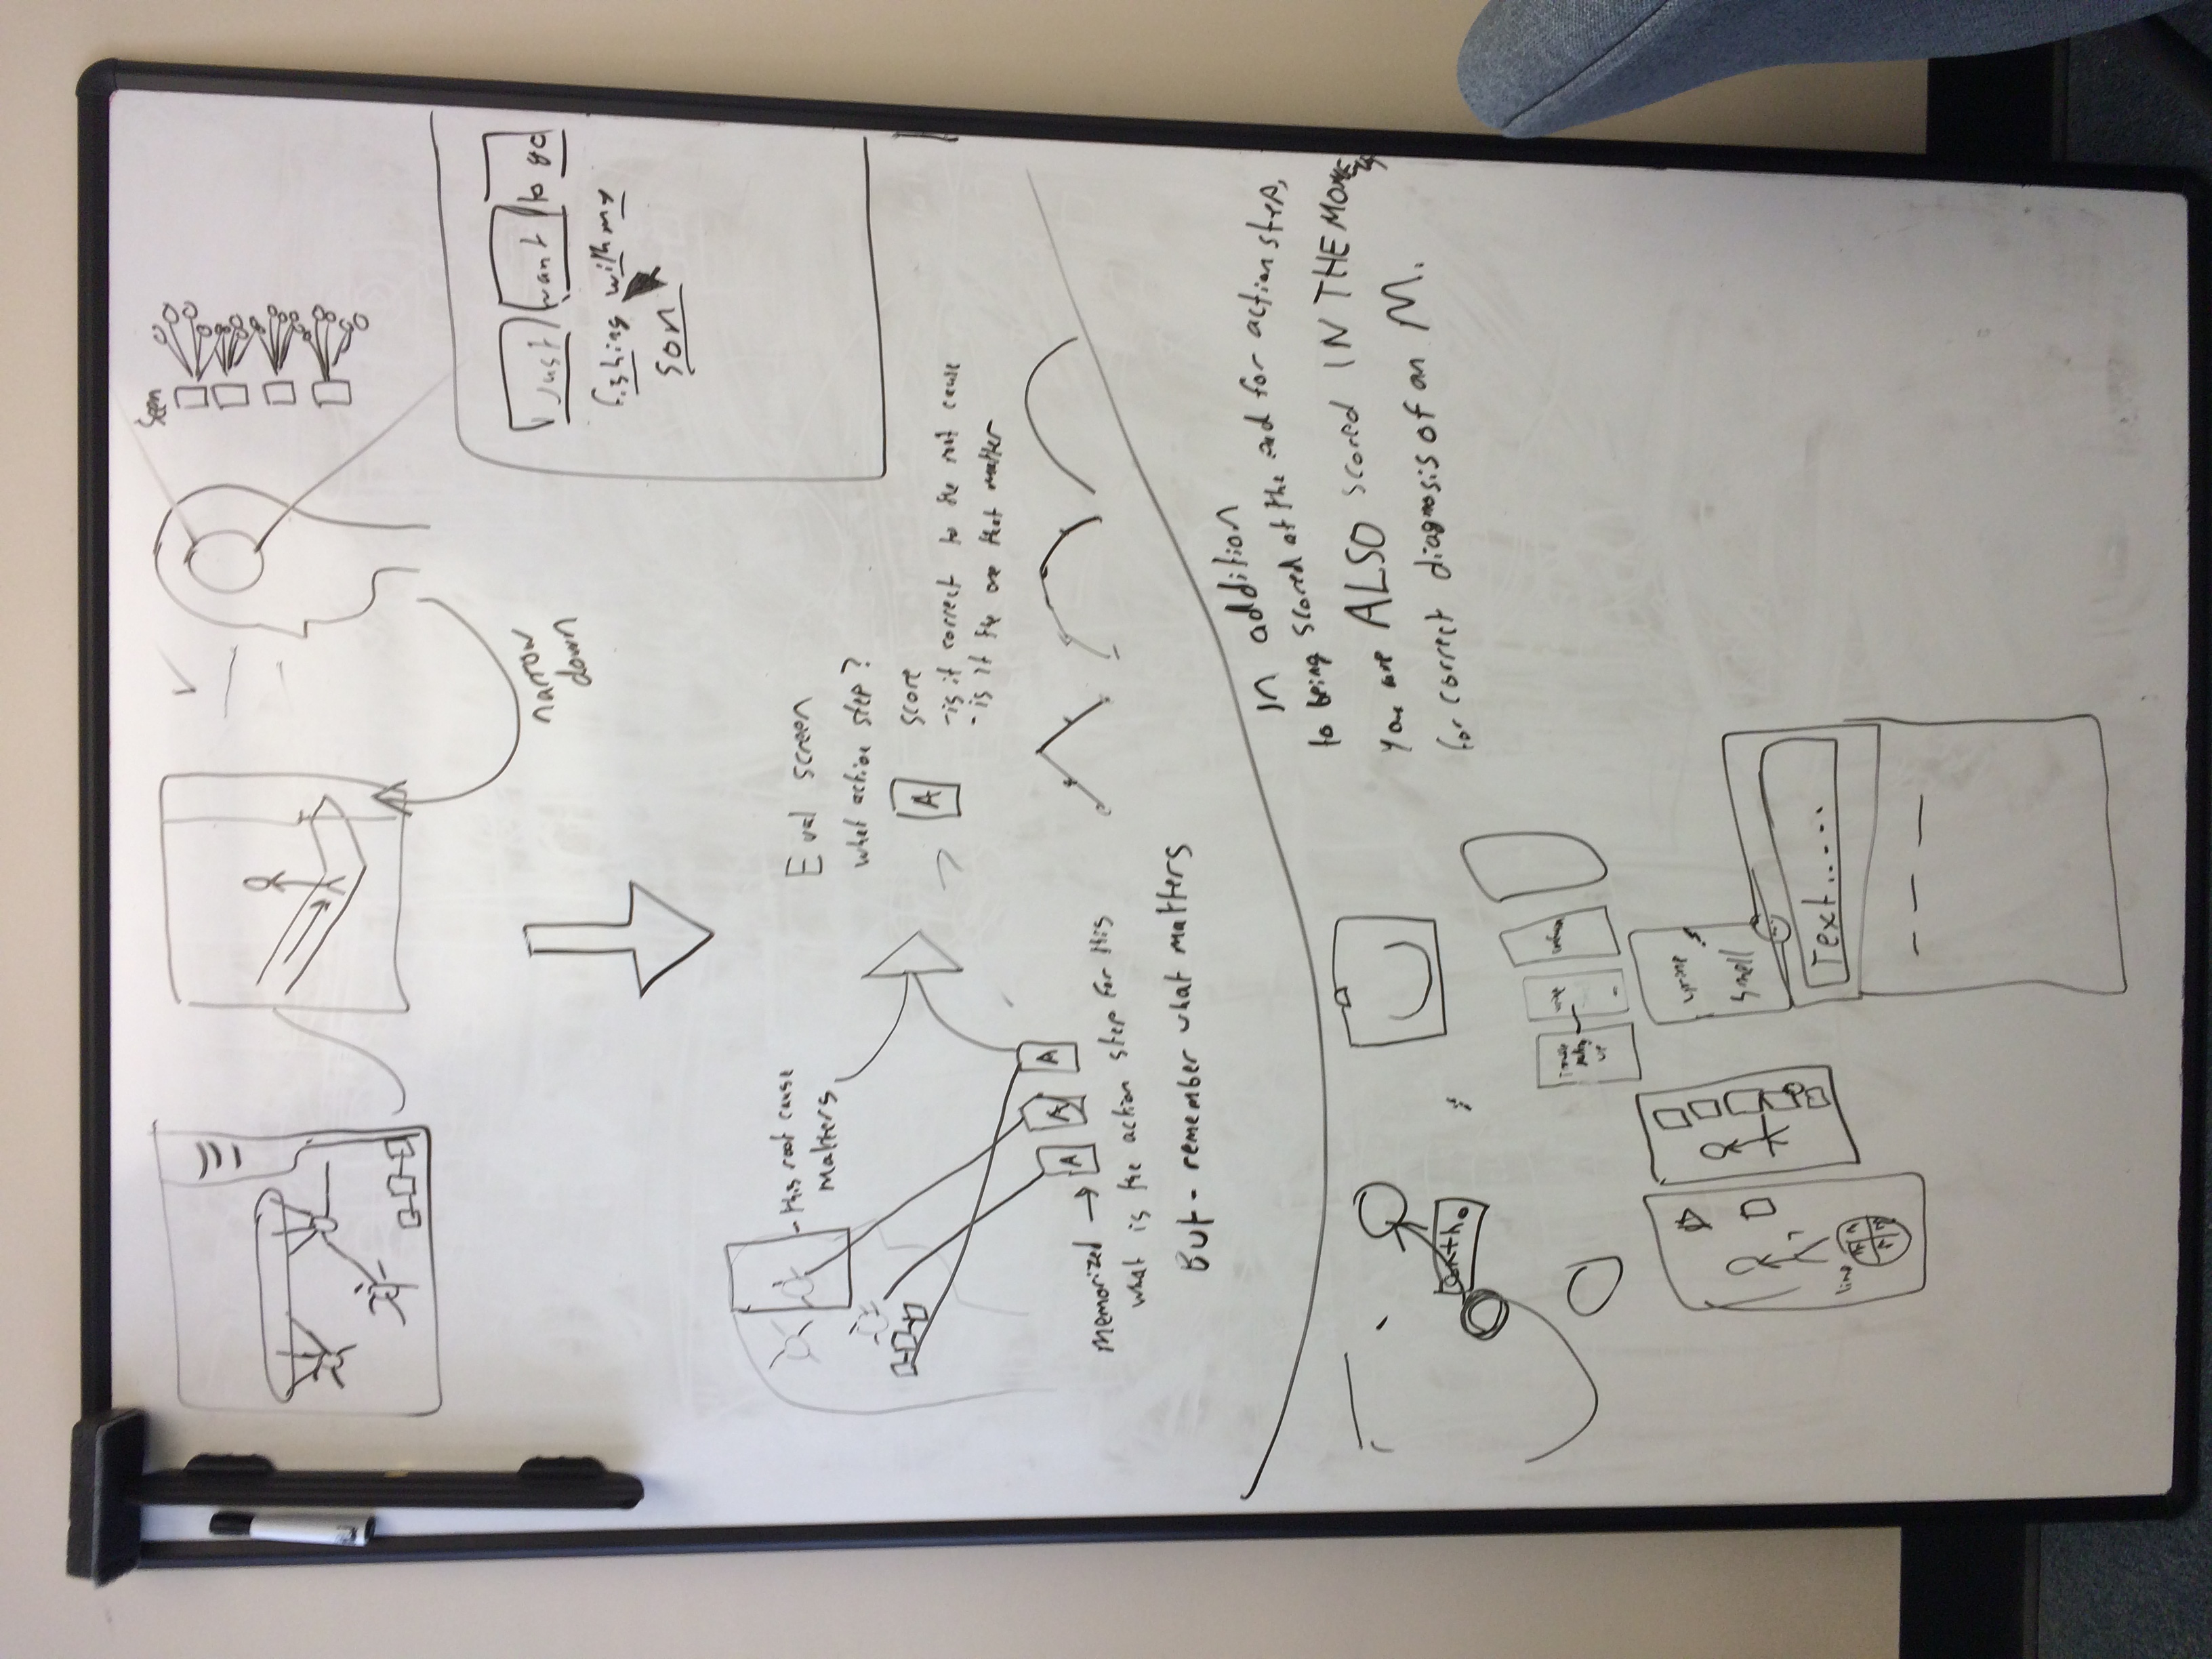 Seen
narrow
down
I just want to go
fishing with my
son
- this root cause
matters
Eval screen
what action step?
A
score
- is it correct to the root cause
- is it the one that matter
A A A
Memorized →
what is the action step for this
But - remember what matters
In addition
to being scored at the end for action step,
you are ALSO scored IN THE MOMENT
for correct diagnosis of an M.
ortho
up
urine
smell
Text.....